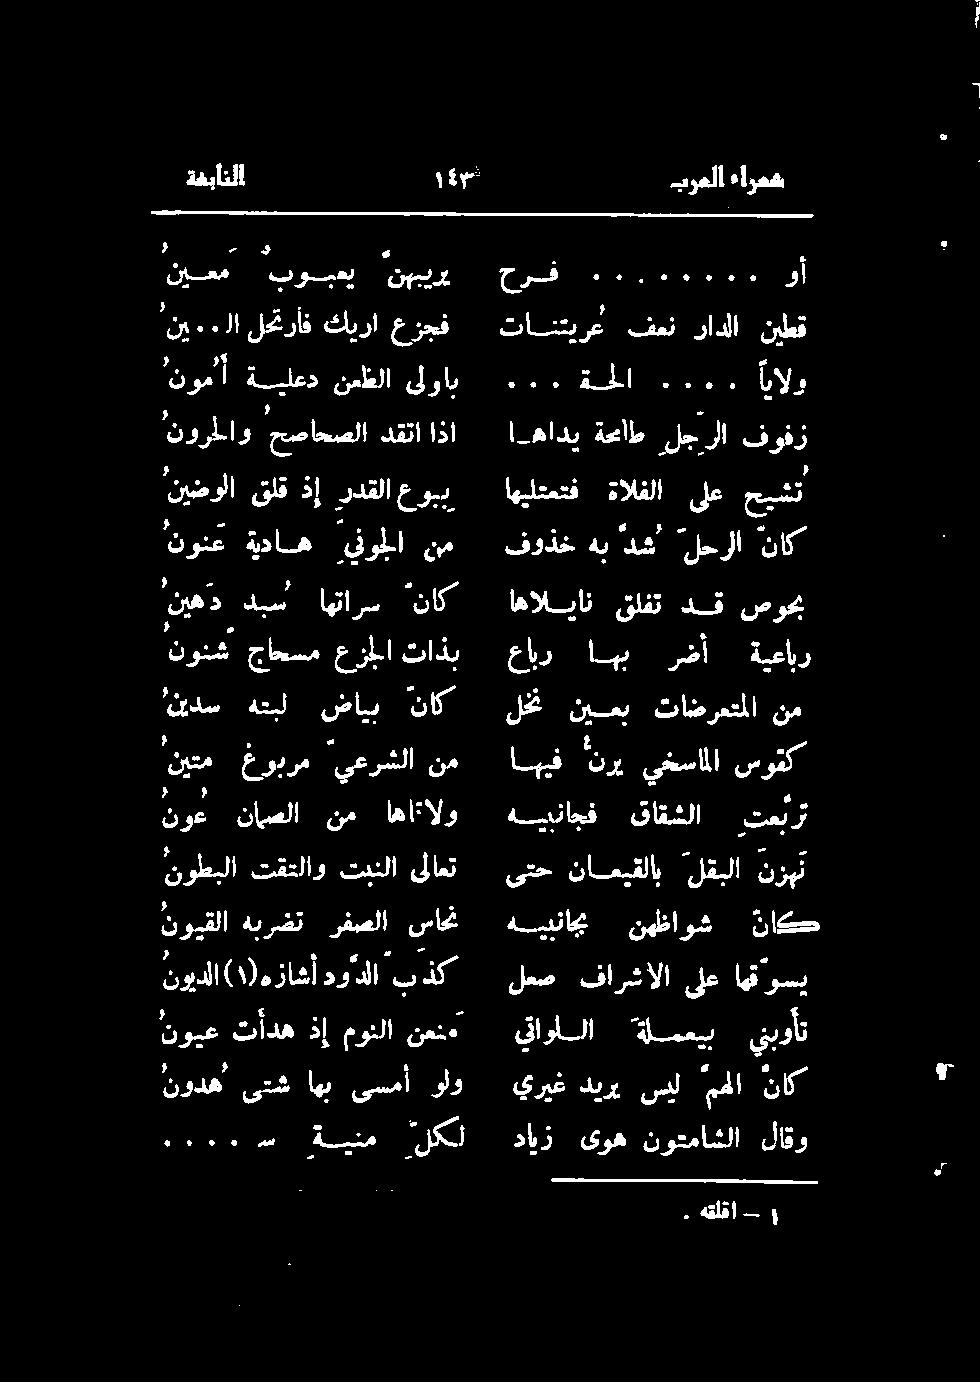 شعراء العرب ١٤٣ النابغة
أو . . . . . . . . فرح يريبهنّ يعبوبُ مَعينُ
قطين الدار نعف عُريتنات فجزع اراك فأرتحل الـ..ينُ
ولاياً . . . . الحـة . . . باولى الظعن دعلبة أُمونُ
زفوف الرّجلِ طامحة يداها اذا اتقد الصحاصحُ والحرونُ
تُشيح على الفلاة فتعتليها ببوعِ القدرِ إذ قلق الوضينُ
كانّ الرحلَ شُدّ به خذوف من الجونيِّ هادية عَنونُ
بحوص قد تفلق نايلاها كانّ سراتها سُبد دَهينُ
رباعية أضر بها رباع بذات الجزع مسحاج شَنونُ
من المتعرضات بعين نخل كانّ بياض لبته سدينُ
كقوس الماسخي يرنّ فيها من الشرعيّ مربوعٌ متينُ
تربّعتِ الشقاق فجانبيه ولاقاها من الصمان عُونُ
نَهزنَ البقلَ بالقيعان حتى تعالى النبت والتقت البطونُ
كانّ شواظهن بجانبيه نحاس الصفر تضربه القيونُ
يسوّقها على الاشراف صعل كذَبّ الذَّود أشازه(١) الديونُ
تأوبني بيعملةَ اللواتي مَنعن النوم إذ هدأت عيونُ
كانّ الهمّ ليس يريد غيري ولو أمسى بها شتى هُدونُ
وقال الشامتون هوى زياد لكلِّ منيةِ سـ . . . .
١ – اقلقه .